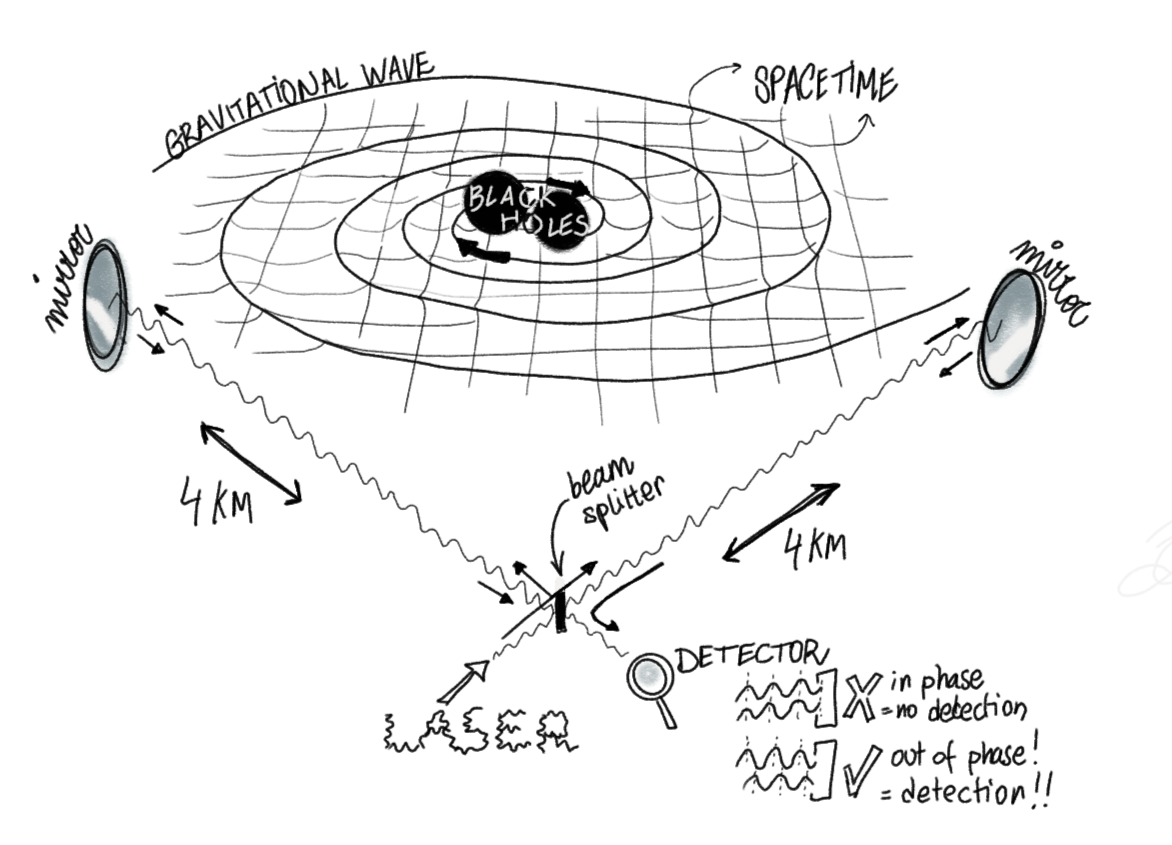 GRAVITATIONAL WAVE
SPACETIME
BLACK
HOLES
mirror
mirror
4 KM
beam
splitter
4 KM
DETECTOR
LASER
in phase
= no detection
out of phase!
= detection!!